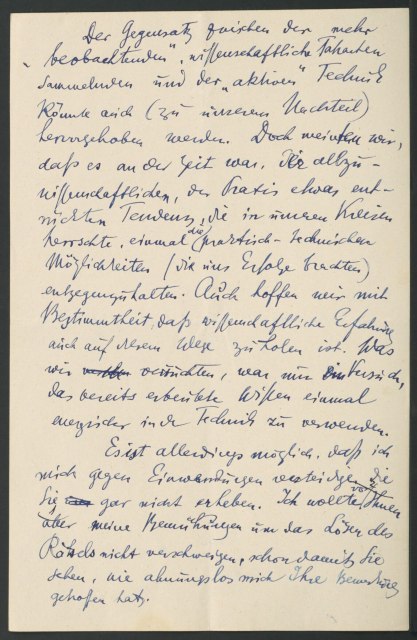 Der Gegensatz zwischen der mehr
„beobachtenden", wissenschaftliche Tatsachen
sammelnden und der „aktiven" Technik
könnte auch (zu unserem Nachteil)
hervorgehoben werden. Doch meinten wir,
daß es an der Zeit war, der allzu-
wissenschaftlichen, der Praxis etwas ent-
rückten Tendenz, die in unseren Kreisen
herrschte, einmal die praktisch-technischen
Möglichkeiten (die uns Erfolge brachten)
entgegenzuhalten. Auch hoffen wir mit
Bestimmtheit, daß wissenschaftliche Erfahrung
auch auf diesem Wege zu holen ist. Was
wir versuchten, war nur ein Versuch,
das bereits erbeutete Wissen einmal
energischer in der Technik zu verwenden.
Es ist allerdings möglich, daß ich
mich gegen Einwendungen verteidige, die
Sie gar nicht erheben. Ich wollte vor Ihnen
aber meine Bemühungen um das Lösen des
Rätsels nicht verschweigen, schon damit Sie
sehen, wie ahnungslos mich Ihre Bemerkung
getroffen hat.